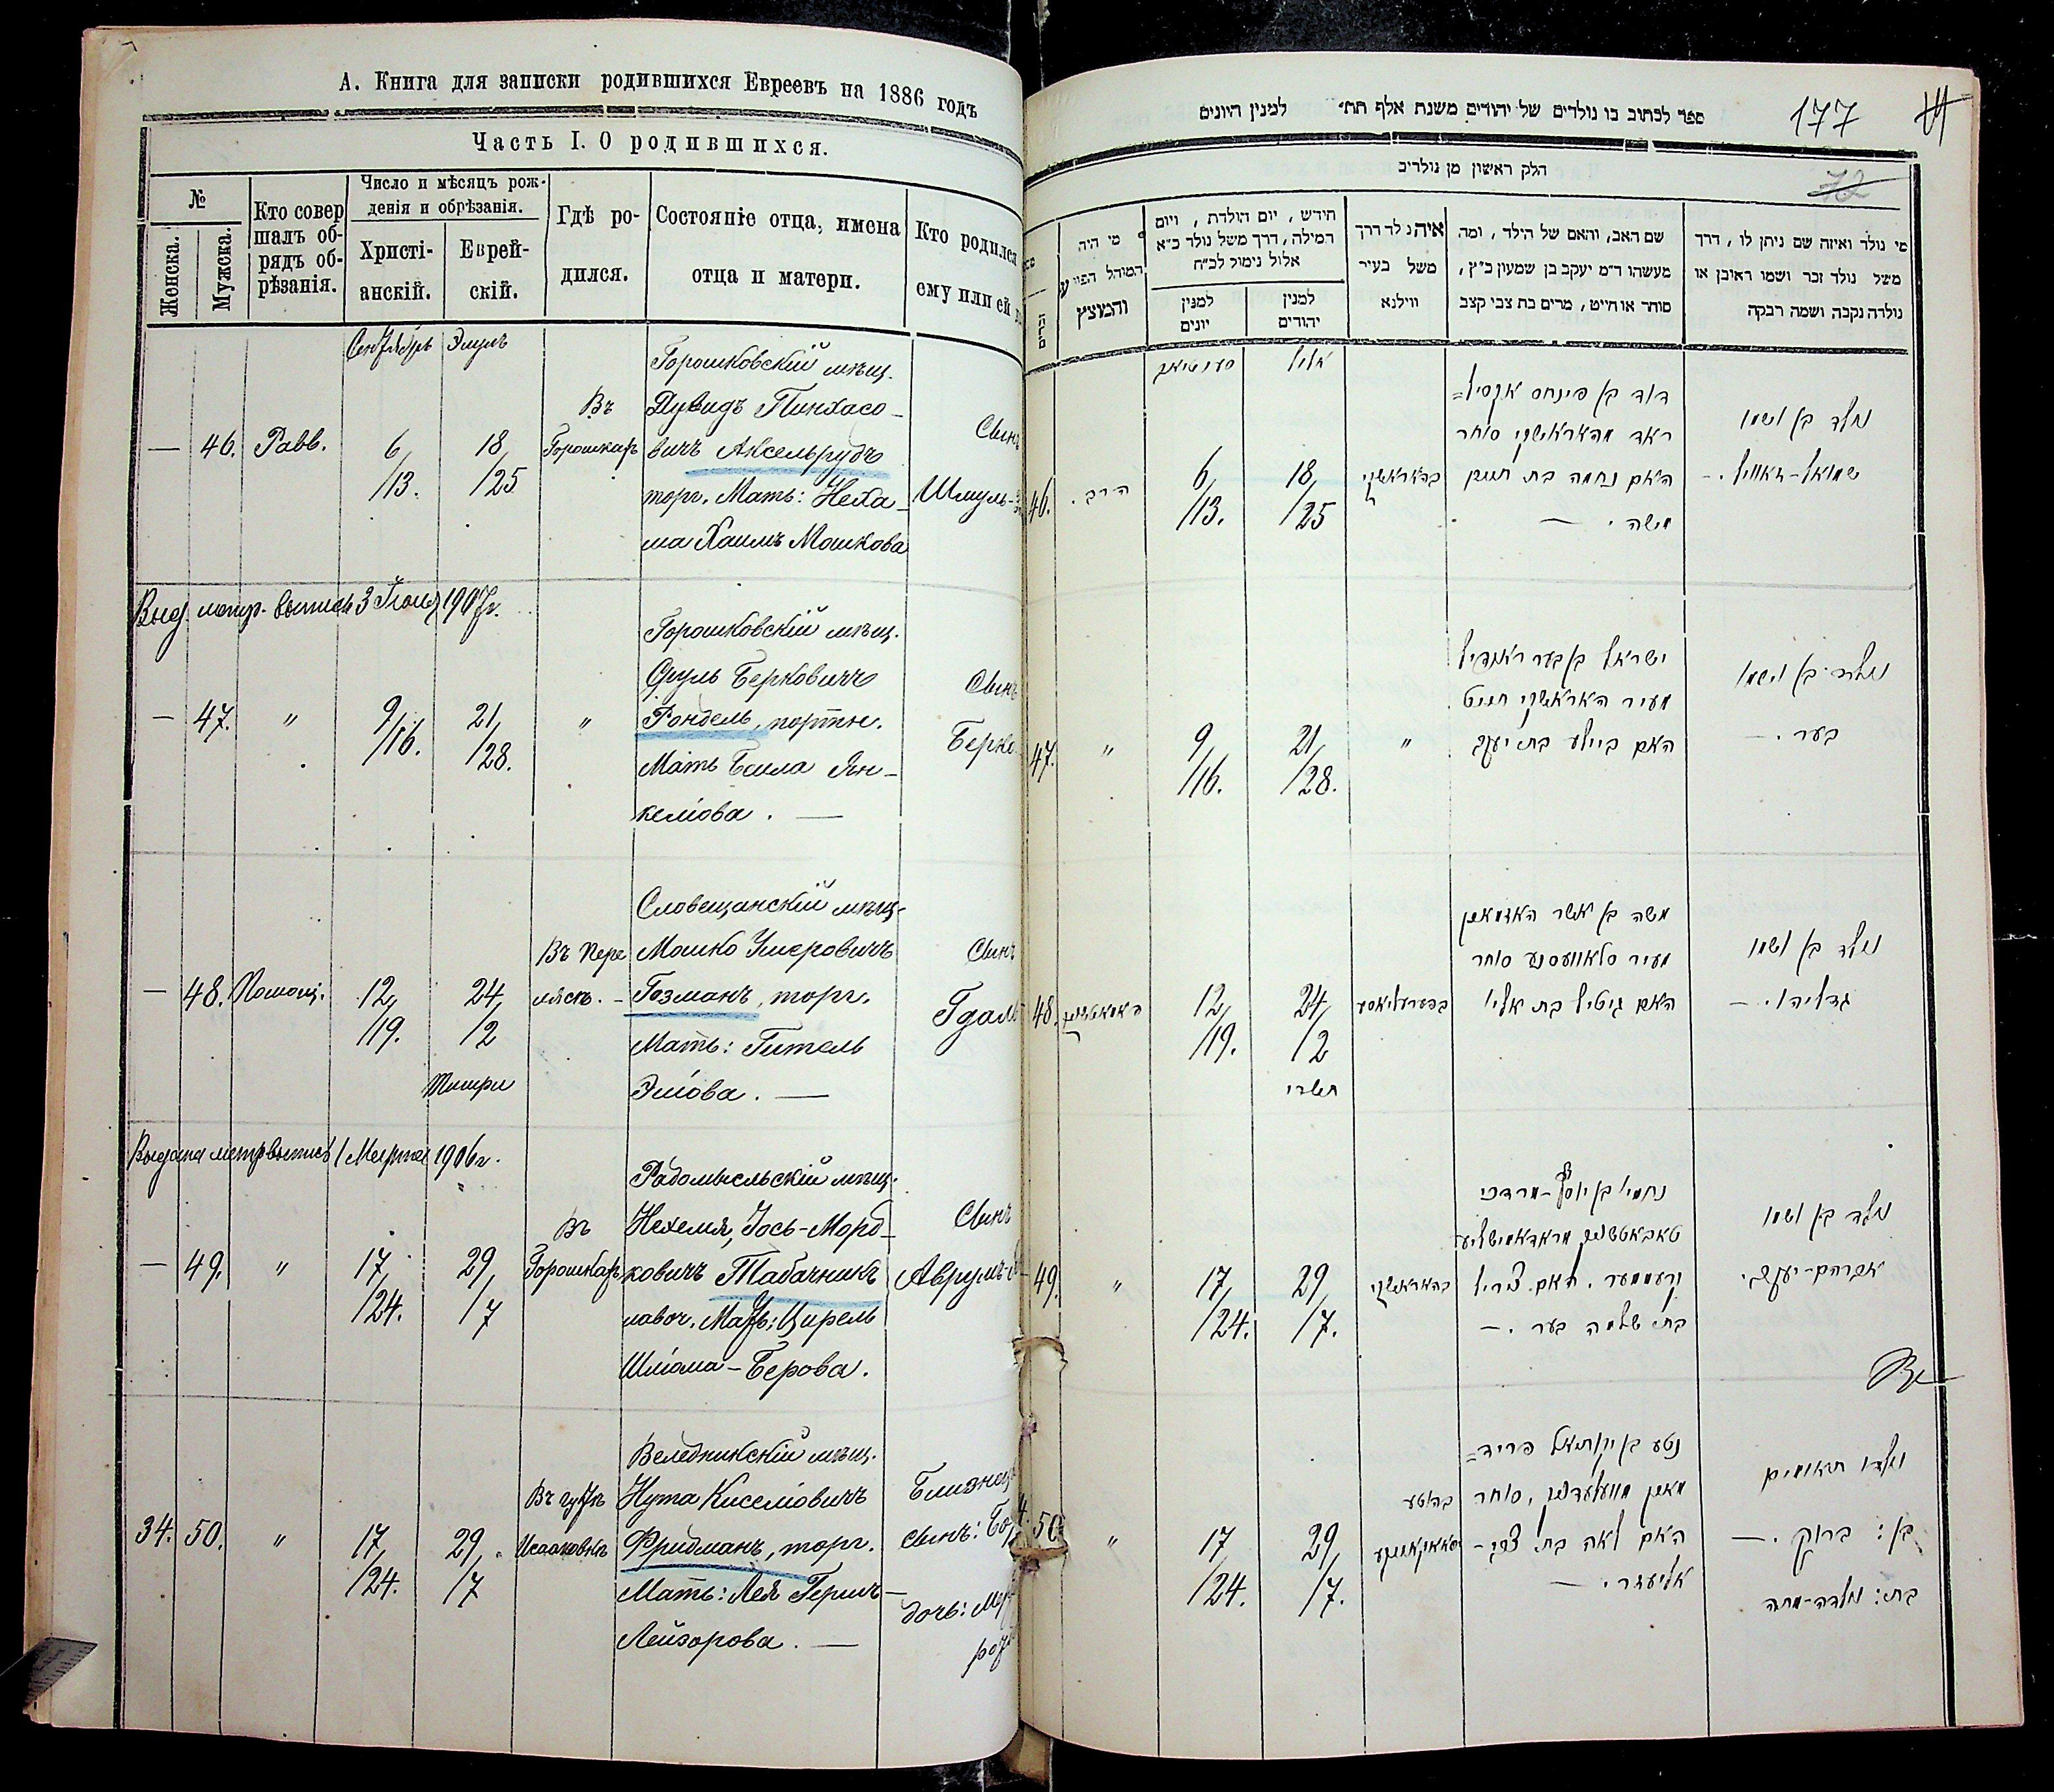 А. Книга для записки родившихся Евреевъ на 1886 годъ
Часть I. О родившихся.
№
Женска.
Мужска.
Кто совер
шалъ об-
рядъ об-
рѣзанія.
Число и мѣсяцъ рож-
денія и обрѣзанія.
Христі-
анскій.
Еврей-
скій.
Гдѣ ро-
дился.
Состояніе отца, имена
отца и матери.
Кто родился
ему или ей
Сентябрь Элулъ
— 46. Равв. 6/13. 18/25
Въ
Горошках
Горошковскій мѣщ.
Дувидъ Пинхасо-
вичъ Аксельрудъ
торг. Мать: Неха-
ма Хаимъ Мошкова
Сынъ
Шмуль-
Выд. метр. выпись 3 1907г.
— 47. " 9/16. 21/28. "
Горошковскій мѣщ.
Сруль Берковичъ
Рондель, портн.
Мать Бейла Ян-
келіова. —
Сынъ
Берко
— 48. Помощ. 12/19. 24/2
Тишри
Въ Пере
мяск. -
Словещанскій мѣщ.
Мошко Ушеровичъ
Гозманъ, торг.
Мать: Гитель
Эліова. —
Сынъ
Гдаль
Выдана метр выпись 1 Марта 1906г.
— 49. " 17/24. 29/7
Въ
Горошках
Радомысльскій мѣщ.
Нехемя, Іось-Морд-
ковичъ Табачникъ
лавоч. Мать: Цирель
Шліома-Берова.
Сынъ
Аврумъ-
34. 50. " 17/24. 29/7
Въ гутѣ
Исааковкѣ
Веледникскій мѣщ.
Нута Киселіовичъ
Фридманъ, торг.
Мать: Лея Гершъ-
Лейзорова. —
Близнец
сынъ:
дочь:
ספר לכתוב בו נולדים של יהודים משנת אלף תת״ למנין היונים
177
72
חלק ראשון מן נולדים
מי נולד ואיזה שם ניתן לו, דרך
משל נולד זכר ושמו ראובן או
נולדה נקבה ושמה רבקה
שם האב, והאם של הילד, ומה
מעשהו ד״מ יעקב בן שמעון כ״ץ,
סוחר או חייט, מרים בת צבי קצב
איה נלד דרך
משל בעיר
ווילנא
חידש, יום הולדת, ויום
המילה, דרך משל נולד כ״א
אלול נימול לכ״ח
למנין
יהודים
למנין
יונים
מי היה
המוהל הפורע
והמוצץ
זכרים
אלול
נולד בן ושמו
דוד בן פינחס אקסיל=
ראד מהאראשקי סוחר
האם נחמה בת חיים
משה. —
בהאראשקי
18/25
6/13.
הרב.
46.
נולד בן ושמו
בער. —
ישראל בן בער ראנדיל
מעיר האראשקי חייט
האם ביילע בת יעקב
"
21/28.
9/16.
"
47.
נולד בן ושמו
גדליהו. —
משה בן אשר
מעיר סלאוועסנע סוחר
האם גיטיל בת אליו
24/2
תשרי
12/19.
48.
נולד בן ושמו
אברהם-יעקב.
נחמי' בן יוסף-מרדכי
קרעמער. האם צירל
בת שלמה בער. —
בהאראשקי
29/7.
17/24.
"
49.
נולדו תאומים
בן: ברוך. —
בת: נולדה-מתה
נטע בן יקותיאל פריד=
האם לאה בת צבי-
אליעזר. —
29/7.
17/24.
"
50.